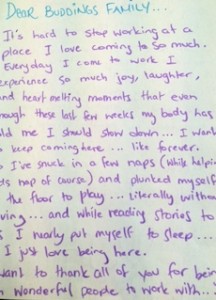 DEAR BUDDINGS FAMILY...
It's hard to stop working at a
place I love coming to so much.
Everyday I come to work I
experience so much joy, laughter,
and heart melting moments that even
though these last few weeks my body has
told me I should slow down... I want
to keep coming here... like forever.
So I've snuck in a few naps (while helpin
kids nap of course) and plunked myself
the floor to play... literally without
ving... and while reading stories to
s I nearly put myself to sleep...
I just love being here.
want to thank all of you for bein
wonderful people to work with...